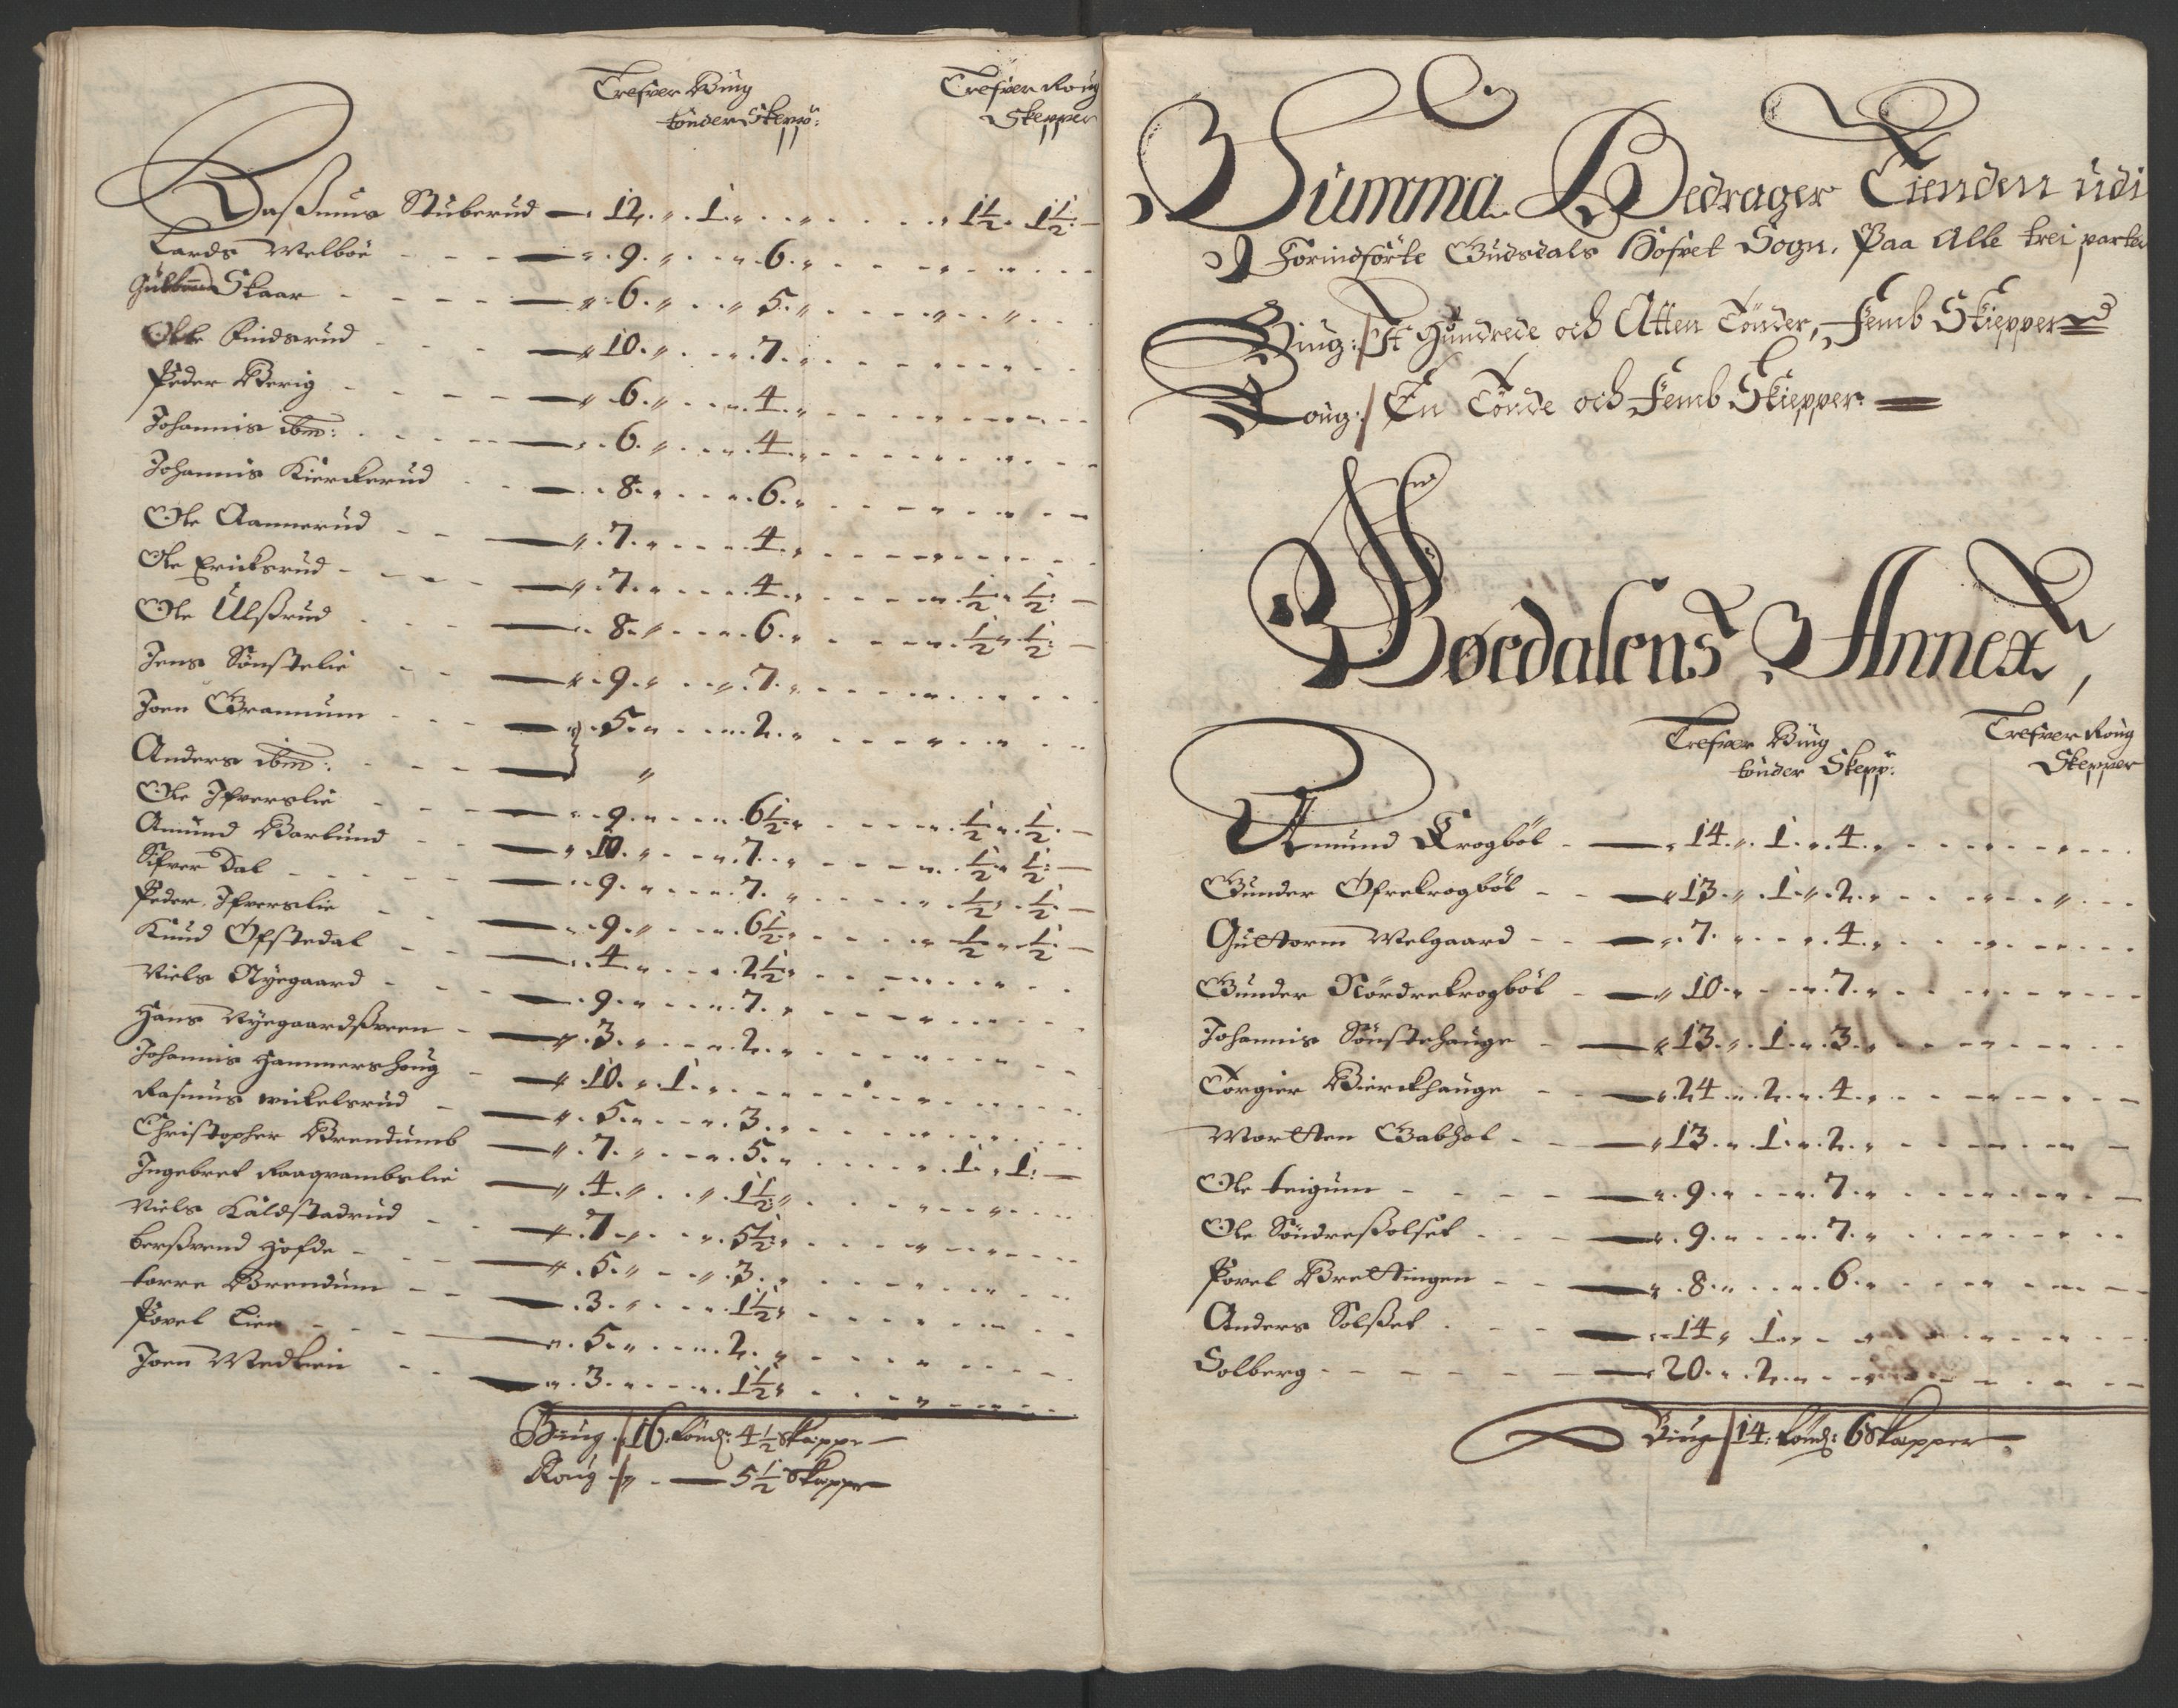 Trefver Biug Trefver Roug
tønder Skepp: Skepper
Rasmus Stuberud — 12 „ 1 „ „ 1½ „ 1½
Lards Melboe — „ 9 „ „ 6 „
Gulbrand Skaar — „ 6 „ „ 5 „
Olle Findsrud — „ 10 „ „ 7 „
Peder Berig — „ 6 „ „ 4 „
Johannis ibm: — „ 6 „ „ 4 „
Johannis Kierckerud — „ 8 „ „ 6 „
Ole Aannerud — „ 7 „ „ 4 „
Ole Ericksrud — „ 7 „ „ 4 „ ½ „ ½
Ole Ulsrud — „ 8 „ „ 6 „ ½ „ ½
Jens Sønstelie — „ 9 „ „ 7 „
Joen Grannum — „ 5 „ „ 2 „
Anders ibm: — „
Ole Ifverslie — „ 9 „ „ 6½ „ ½ „ ½
Amund Barlund — „ 10 „ „ 7 „ ½ „ ½
Sifver Dal — „ 9 „ „ 7 „ ½ „ ½
Peder Ifverslie — „ 9 „ „ 6½ „ ½ „ ½
Knud Ofstedal — „ 4 „ „ 2½ „
Niels Nyegaard — „ 9 „ „ 7 „
Hans Nyegaardsveen — „ 3 „ „ 2 „
Johannis Hammershoug — „ 10 „ 1 „
Rasmus Mickelsrud — „ 5 „ „ 3 „
Christopher Brendumb — „ 7 „ „ 5 „ 1 „ 1
Ingebret Raagvambslie — „ 4 „ „ 1½ „
Niels Kaldstadrud — „ 7 „ „ 5½ „
Bersvend Hofde — „ 5 „ „ 3 „
Torre Brendum — „ 3 „ „ 1½ „
Povel Lien — „ 5 „ „ 2 „
Joen Medlien — „ 3 „ „ 1½ „
Biug / 16 tønd: 4½ Skepper
Roug / „ — 5½ Skepper
Summa Bedrager Tienden udi
Forindførte Gudsdals Hofvet Sogn, Paa Alle trei parter
Biug: / Et Hundrede och Atten Tønder, Femb Skiepper
Roug: / En Tønde och Femb Skiepper
Bøedalens Annex,
Trefver Biug Trefver Roug
tønder Skepp: Skepper
Amund Krogbøl — „ 14 „ 1 „ 4 „
Gunder Øfrekrogbøl — „ 13 „ 1 „ 2 „
Guttorm Melgaard — „ 7 „ „ 4 „
Gunder Nørdrekrogbøl — „ 10 „ „ 7 „
Johannis Sønstehauge — „ 13 „ 1 „ 3 „
Torgier Bierckhauge — „ 24 „ 2 „ 4 „
Mortten Gabhol — „ 13 „ 1 „ 2 „
Ole teigum — „ 9 „ „ 7 „
Ole Søndresolset — „ 9 „ „ 7 „
Povel Brettingen — „ 8 „ „ 6 „
Anders Solset — „ 14 „ 1 „
Solberg — „ 20 „ 2 „
Biug / 14: tønd: 6 Skepper